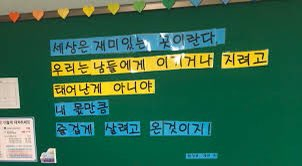 세상은 재미있는 곳이란다.
우리는 남들에게 이기거나 지려고
태어난게 아니야
내 몫만큼
즐겁게 살려고 온것이지!